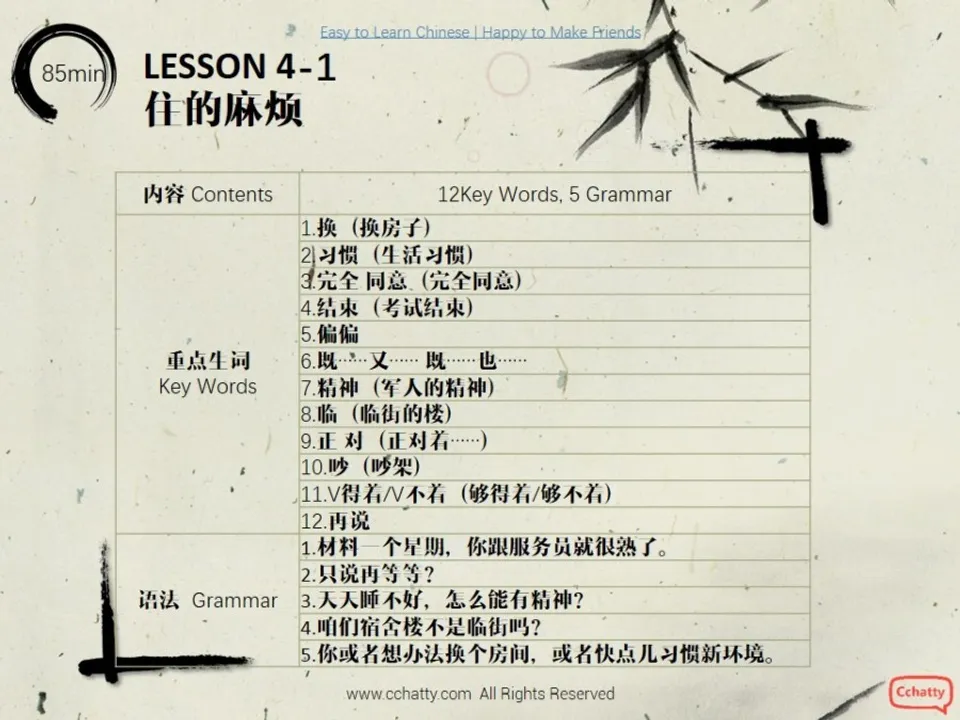 Easy to Learn Chinese | Happy to Make Friends
85min
LESSON 4-1
住的麻烦
内容 Contents
12Key Words, 5 Grammar
重点生词
Key Words
1.换（换房子）
2.习惯（生活习惯）
3.完全 同意（完全同意）
4.结束（考试结束）
5.偏偏
6.既……又…… 既……也……
7.精神（军人的精神）
8.临（临街的楼）
9.正 对（正对着……）
10.吵（吵架）
11.V得着/V不着（够得着/够不着）
12.再说
语法 Grammar
1.材料一个星期，你跟服务员就很熟了。
2.只说再等等？
3.天天睡不好，怎么能有精神？
4.咱们宿舍楼不是临街吗？
5.你或者想办法换个房间，或者快点儿习惯新环境。
www.cchatty.com All Rights Reserved
Cchatty